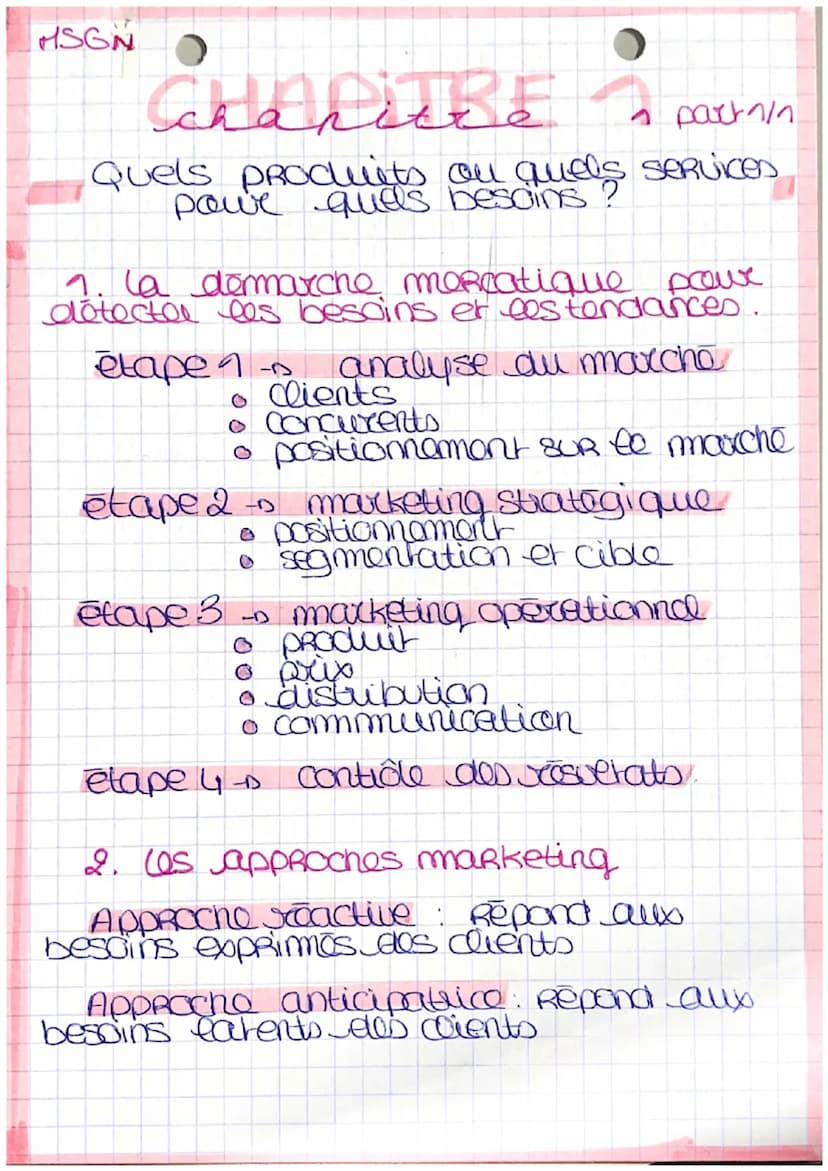 MSGN
CHAPITRE 1
chapitre 1 part 1/1
Quels produits ou quels services
pour quels besoins ?
1. la démarche mercatique pour
détecter les besoins et les tendances.
étape 1 → analyse du marché
• clients
• concurrents
• positionnement sur le marché
étape 2 → marketing stratégique
• positionnement
• segmentation et cible
étape 3 → marketing opérationnel
• produit
• prix
• distribution
• communication
étape 4 → contrôle des résultats.
2. les approches marketing
Approche réactive : Répond aux
besoins exprimés des clients
Approche anticipatrice : Répond aux
besoins latents des clients